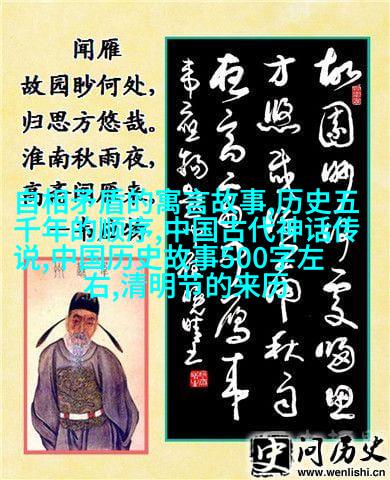 闻雁
故园眇何处,
归思方悠哉。
淮南秋雨夜,
高斋闻雁来。
自相矛盾的寓言故事,历史五
千年的顺序,中国古代神话传
说,中国历史故事500字左
右,清明节的来历
故園眇何處歸思
方悠哉淮南秋雨
夜高齋聞雁來
问历史
www.wenlishi.com